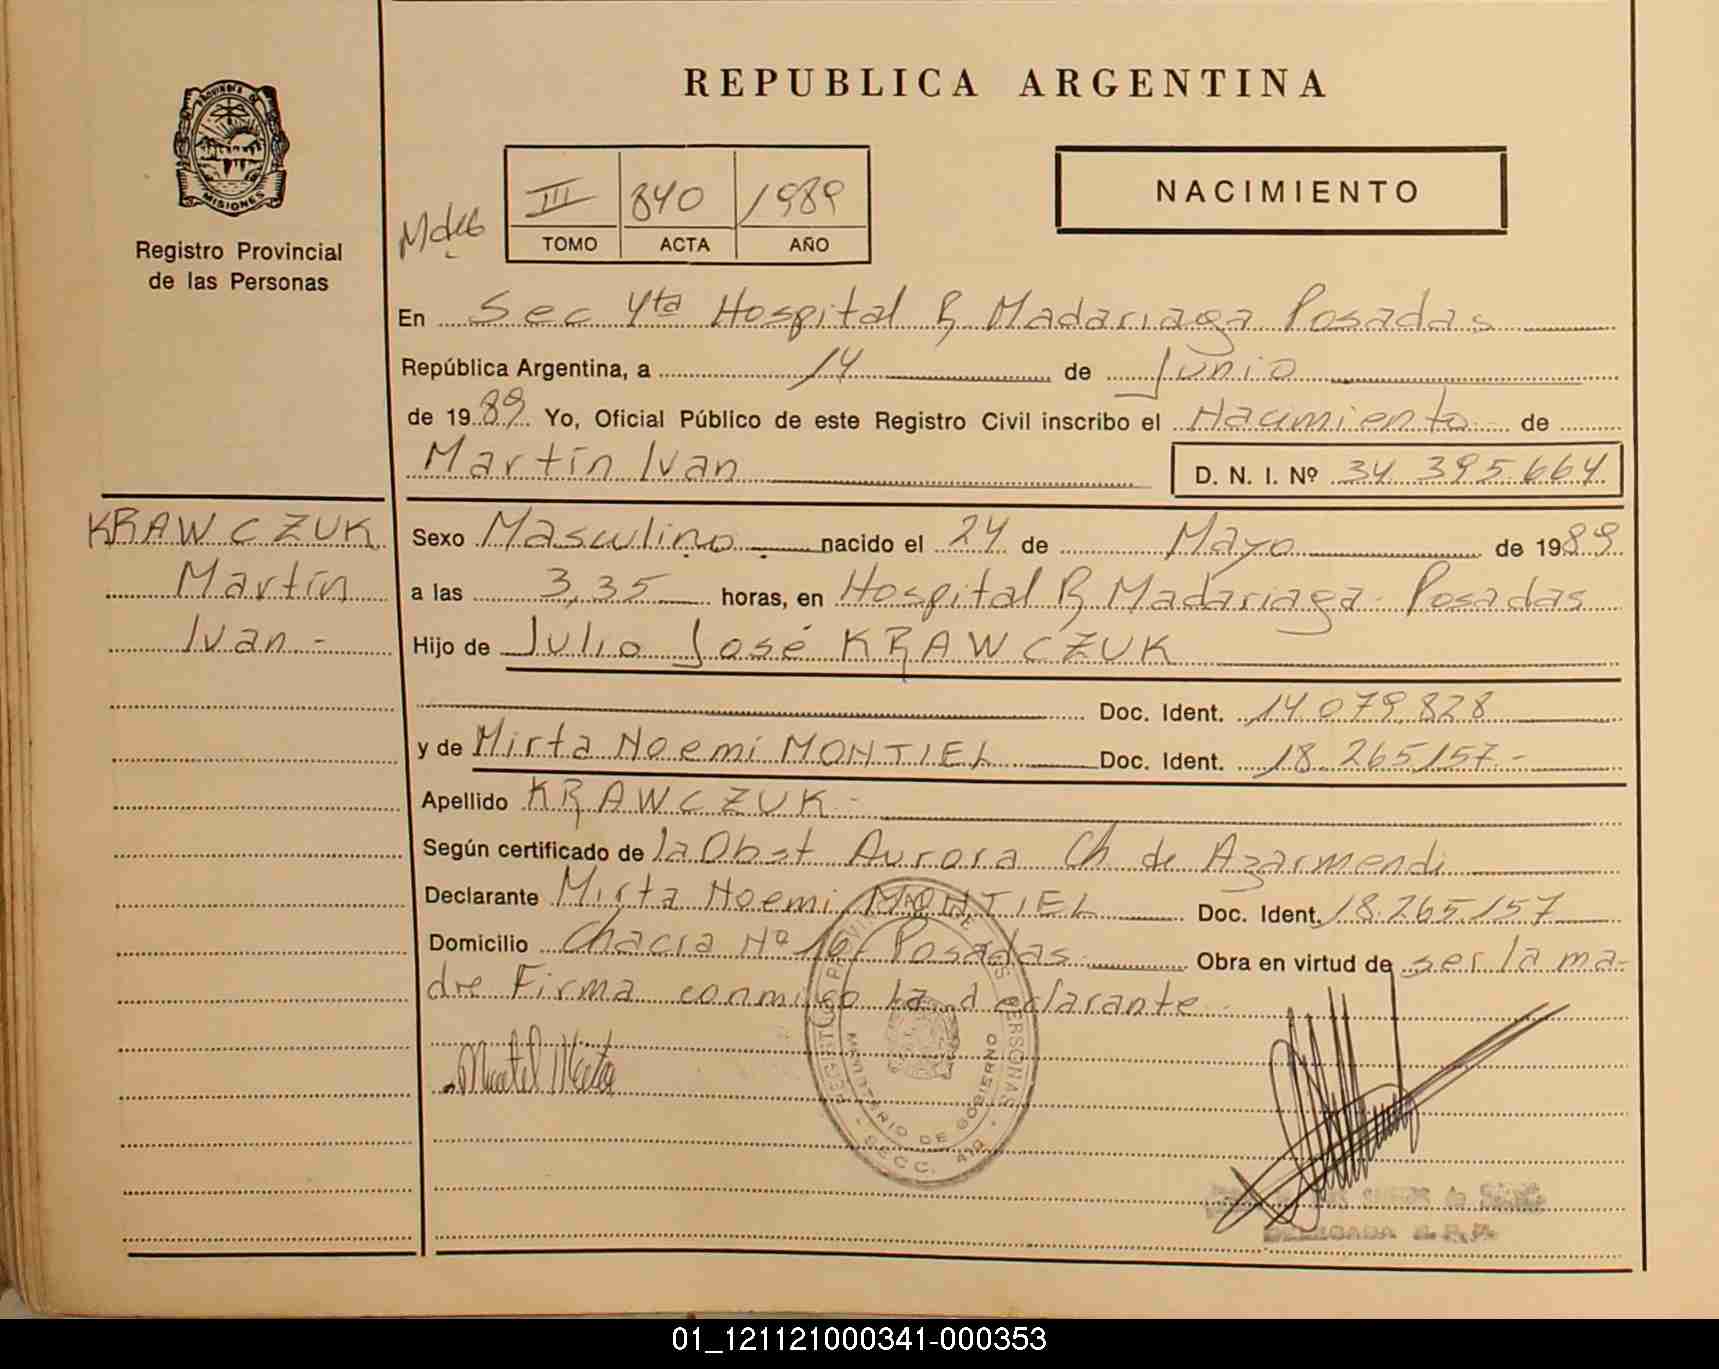 PROVINCIA DE
MISIONES
Registro Provincial
de las Personas
REPUBLICA ARGENTINA
NACIMIENTO
III 840 1989
TOMO ACTA AÑO
En Sec 4ta Hospital R Madariaga Posadas
República Argentina, a 14 de Junio
de 1989 Yo, Oficial Público de este Registro Civil inscribo el Nacimiento de
Martín Ivan D. N. I. Nº 34 395.664
KRAWCZUK
Martín
Ivan -
Sexo Masculino nacido el 24 de Mayo de 1989
a las 3,35 horas, en Hospital R, Madariaga - Posadas
Hijo de Julio José KRAWCZUK
Doc. Ident. 14.079.828
y de Mirta Noemi MONTIEL Doc. Ident. 18.265157 -
Apellido KRAWCZUK -
Según certificado de la Obst Aurora Ch de Azarmendi
Declarante Mirta Noemi MONTIEL Doc. Ident. 18.265.157
Domicilio Chacra Nº 16 Posadas Obra en virtud de ser la ma-
dre Firma conmigo la declarante
Montiel Mirta
REGISTRO PROVINCIAL DE LAS PERSONAS
MINISTERIO DE GOBIERNO
SECC. 4ta
DELEGADA R.P.P.
01_121121000341-000353